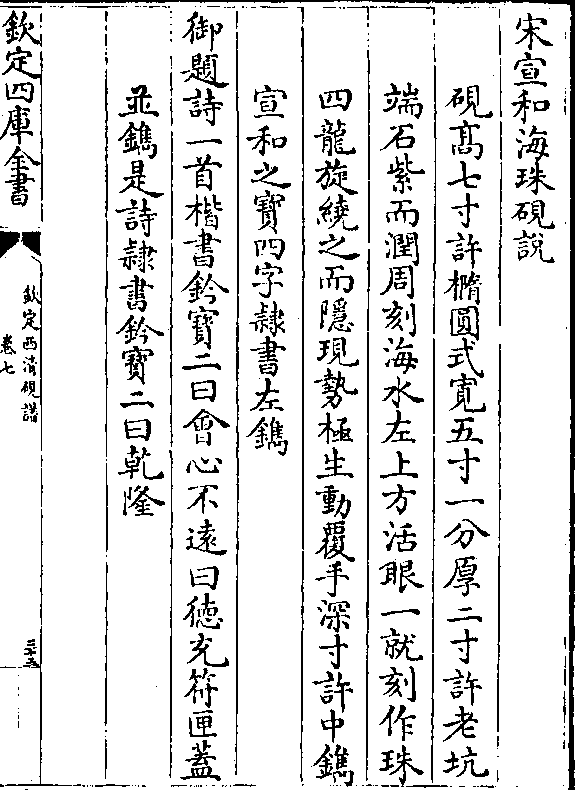 宋宣和海珠硯說
硯髙七寸許橢圓式寛五寸一分厚二寸許老坑
端石紫而潤周刻海水左上方活眼一就刻作珠
四龍旋繞之而隱現勢極生動覆手深寸許中鐫
宣和之寶四字隷書左鐫
御題詩一首楷書鈐寶二曰會心不逺曰徳充符匣蓋
並鐫是詩隷書鈐寶二曰乾隆
欽定四庫全書
欽定西清硯譜
卷七
三十五